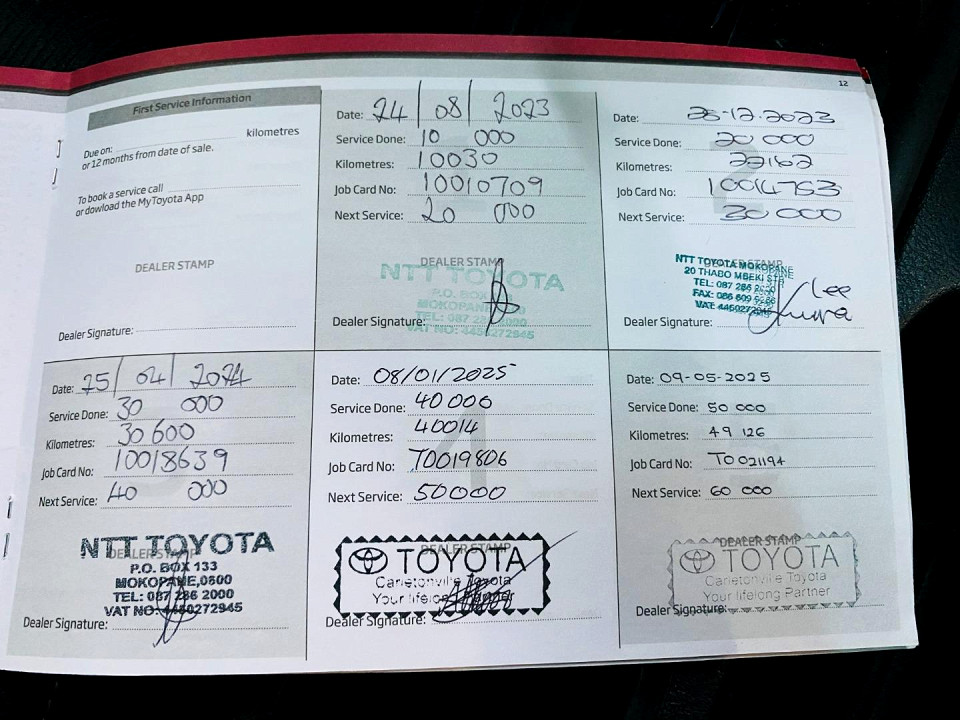 12
First Service Information
Due on: kilometres
or 12 months from date of sale.
To book a service call
or dowload the MyToyota App
DEALER STAMP
Dealer Signature:
Date: 24/08/2023
Service Done: 10 000
Kilometres: 10030
Job Card No: 10010709
Next Service: 20 000
DEALER STAMP
NTT TOYOTA
P.O. BOX
MOKOPANE
TEL: 087 286 2000
VAT NO: 4450272945
Dealer Signature:
Date: 28-12-2023
Service Done: 20 000
Kilometres: 22162
Job Card No: 10014753
Next Service: 30 000
DEALER STAMP
NTT TOYOTA MOKOPANE
20 THABO MBEKI STR
TEL: 087 286
FAX: 086 609
VAT: 4450272945
Lee
Dealer Signature:
Date: 25/04/2024
Service Done: 30 000
Kilometres: 30 600
Job Card No: 10018639
Next Service: 40 000
DEALER STAMP
NTT TOYOTA
P.O. BOX 133
MOKOPANE, 0600
TEL: 087 286 2000
VAT NO: 4450272945
Dealer Signature:
Date: 08/01/2025
Service Done: 40 000
Kilometres: 40014
Job Card No: T0019806
Next Service: 50000
DEALER STAMP
TOYOTA
Carletonville Toyota
Your lifelong Partner
Dealer Signature:
Date: 09-05-2025
Service Done: 50 000
Kilometres: 49 126
Job Card No: T0021194
Next Service: 60 000
DEALER STAMP
TOYOTA
Carletonville Toyota
Your lifelong Partner
Dealer Signature: